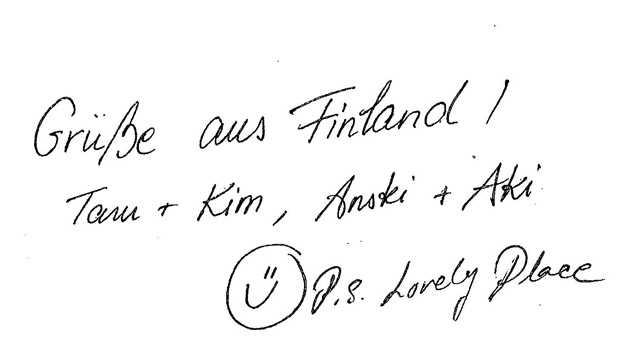 Grüße aus Finland!
Taru + Kim, Anski + Aki
P.S. Lovely Place